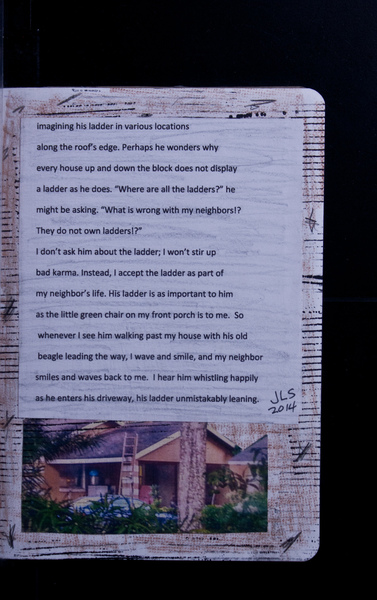 imagining his ladder in various locations
along the roof's edge. Perhaps he wonders why
every house up and down the block does not display
a ladder as he does. “Where are all the ladders?” he
might be asking. “What is wrong with my neighbors!?
They do not own ladders!?”
I don't ask him about the ladder; I won't stir up
bad karma. Instead, I accept the ladder as part of
my neighbor's life. His ladder is as important to him
as the little green chair on my front porch is to me.  So
whenever I see him walking past my house with his old
beagle leading the way, I wave and smile, and my neighbor
smiles and waves back to me.  I hear him whistling happily
as he enters his driveway, his ladder unmistakably leaning.
JLS
2014